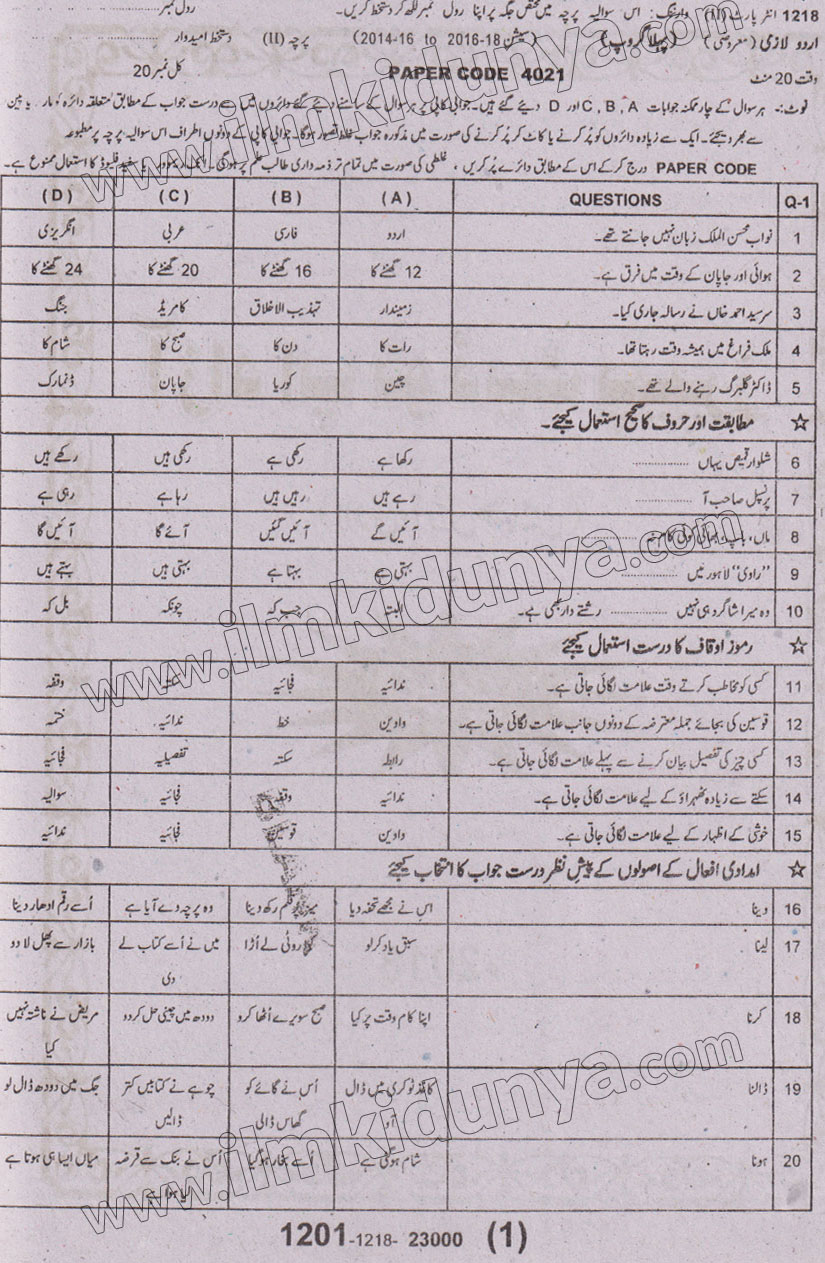 1218 انٹر پارٹ (II) وارننگ: اس سوالیہ پرچہ میں مختص جگہ پر اپنا رول نمبر لکھ کر دستخط کریں۔ رول نمبر
اردو لازمی (معروضی) (پہلا گروپ) (سیشن 18-2016 to 16-2014) پرچہ (II) دستخط امیدوار
وقت 20 منٹ PAPER CODE 4021 کل نمبر 20
نوٹ:۔ ہر سوال کے چار ممکنہ جوابات C, B, A اور D دیئے گئے ہیں۔ جوابی کاپی پر ہر سوال کے سامنے دیئے گئے دائروں میں سے درست جواب کے مطابق متعلقہ دائرہ کو مارکر یا پین
سے بھر دیجئے۔ ایک سے زیادہ دائروں کو پُر کرنے یا کاٹ کر پُر کرنے کی صورت میں مذکورہ جواب غلط تصور ہوگا۔ جوابی کاپی کے دونوں اطراف اس سوالیہ پرچہ پر مطبوعہ
PAPER CODE درج کر کے اس کے مطابق دائرے پُر کریں، غلطی کی صورت میں تمام تر ذمہ داری طالب علم پر ہوگی۔ سفید فلیوڈ کا استعمال ممنوع ہے۔
Q-1 QUESTIONS (A) (B) (C) (D)
1 نواب محسن الملک زبان نہیں جانتے تھے۔ اردو فارسی عربی انگریزی
2 ہوائی اور جاپان کے وقت میں فرق ہے۔ 12 گھنٹے کا 16 گھنٹے کا 20 گھنٹے کا 24 گھنٹے کا
3 سرسید احمد خاں نے رسالہ جاری کیا۔ زمیندار تہذیب الاخلاق کامریڈ جنگ
4 ملک فراغ میں ہمیشہ وقت رہتا تھا۔ رات کا دن کا صبح کا شام کا
5 ڈاکٹر گلبرگ رہنے والے تھے۔ چین کوریا جاپان ڈنمارک
☆ مطابقت اور حروف کا صحیح استعمال کیجئے۔
6 شلوار قمیض یہاں .......... رکھا ہے رکھی ہے رکھی ہیں رکھے ہیں
7 پرنسپل صاحب آ .......... رہے ہیں رہیں ہیں رہا ہے رہی ہے
8 ماں، باپ، بھائی کوئی کام نہ .......... آئیں گے آئیں گئیں آئے گا آئیں گا
9 "راوی" لاہور میں .......... بہتی ہے بہتا ہے بہتی ہیں بہتے ہیں
10 وہ میرا شاگرد ہی نہیں .......... رشتے دار بھی ہے۔ البتہ جب کہ چونکہ بل کہ
☆ رموز اوقاف کا درست استعمال کیجئے
11 کسی کو مخاطب کرتے وقت علامت لگائی جاتی ہے۔ ندائیہ فجائیہ سکتہ وقفہ
12 قوسین کی بجائے جملہ معترضہ کے دونوں جانب علامت لگائی جاتی ہے۔ واوین خط ندائیہ ختمہ
13 کسی چیز کی تفصیل بیان کرنے سے پہلے علامت لگائی جاتی ہے۔ رابطہ سکتہ تفصیلیہ فجائیہ
14 سکتے سے زیادہ ٹھہراؤ کے لیے علامت لگائی جاتی ہے۔ ندائیہ وقفہ فجائیہ سوالیہ
15 خوشی کے اظہار کے لیے علامت لگائی جاتی ہے۔ واوین قوسین فجائیہ ندائیہ
☆ امدادی افعال کے اصولوں کے پیش نظر درست جواب کا انتخاب کیجئے
16 دینا اس نے مجھے تحفہ دیا میز پر قلم رکھ دینا وہ پرچہ دے آیا ہے اُسے رقم ادھار دینا
17 لینا سبق یاد کر لو روٹی لے اُڑا میں نے اُسے کتاب لے دی بازار سے پھل لا دو
18 کرنا اپنا کام وقت پر کیا صبح سویرے اُٹھا کرو دودھ میں چینی حل کر دو مریض نے ناشتہ نہیں کیا
19 ڈالنا کاغذ ٹوکری میں ڈال آؤ اُس نے گائے کو گھاس ڈالی چوہے نے کتابیں کتر ڈالیں جگ میں دودھ ڈال لو
20 ہونا شام ہوگئی ہے اُسے بخار ہو گیا اُس نے بنک سے قرضہ لیا ہوا ہے میاں ایسا ہی ہوتا ہے
1201-1218- 23000 (1)
www.ilmkidunya.com
www.ilmkidunya.com
www.ilmkidunya.com